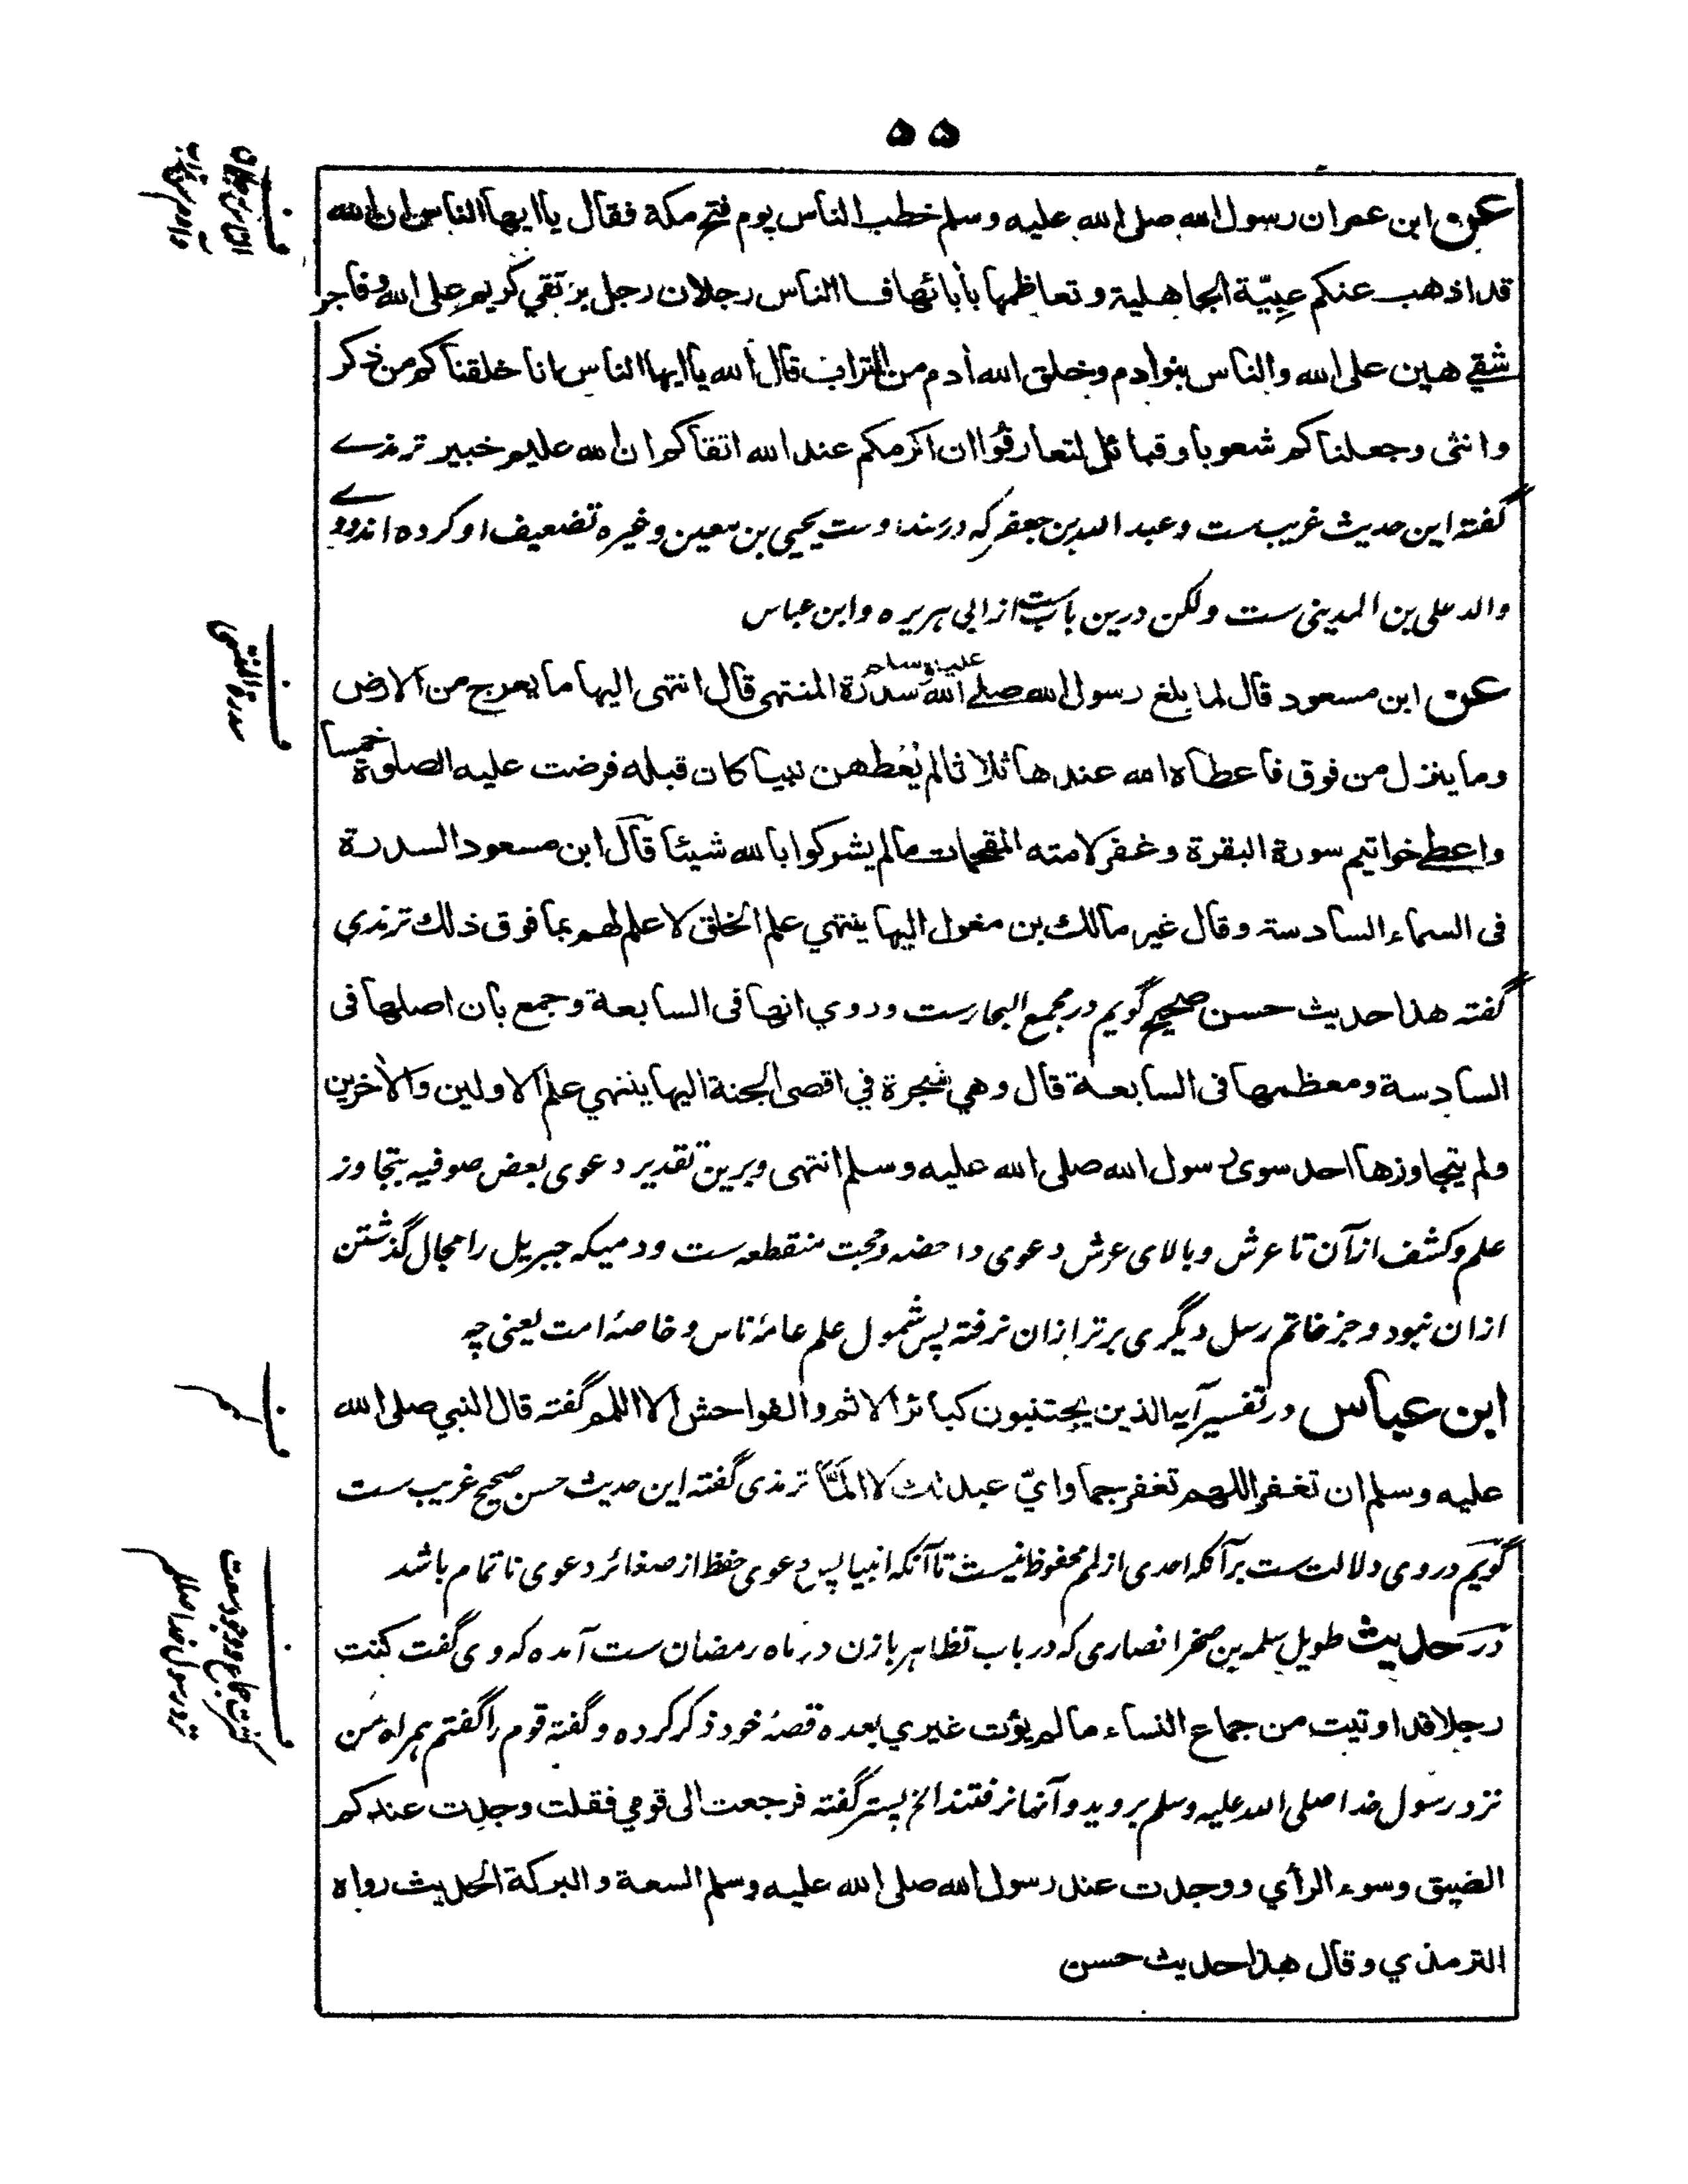 ۵۵
عن ابن عمر ان رسول الله صلى الله عليه وسلم خطب الناس يوم فتح مكة فقال يا ايها الناس ان الله
قد اذهب عنكم عبيّة الجاهلية وتعاظمها بأبائها فالناس رجلان رجل بر تقي كريم على الله وفاجر
شقي هين على الله والناس بنو ادم وخلق الله أدم من التراب قال الله يا ايها الناس انا خلقناكم من ذكر
وانثى وجعلناكم شعوبا وقبائل لتعارفوا ان اكرمكم عند الله اتقاكم ان الله عليم خبير ترمذے
گفته این حدیث غریب ست وعبد الله بن جعفر که در سند اوست یحیی بن معین وغیره تضعیف او کرده اند ووے
والد علی بن المدینی ست ولکن درین باب ست از ابی هریره وابن عباس
عن ابن مسعود قال لما بلغ رسول الله صلے الله عليه وسلم سدرة المنتهى قال انتهى اليها ما يعرج من الارض
وما ينزل من فوق فاعطاه الله عندها ثلاثا لم يُعْطهن نبيا كان قبله فرضت عليه الصلوة خمسا
واعطے خواتيم سورة البقرة وغفر لامته المقحمات ما لم يشركوا بالله شيئا قال ابن مسعود السدرة
فى السماء السادسة وقال غير مالك بن مغول اليها ينتهي علم الخلق لا علم لهم بما فوق ذلك ترمذي
گفته هذا حديث حسن صحيح گویم در مجمع البحار ست وروي انها فى السابعة وجمع بان اصلها فى
السادسة ومعظمها فى السابعة قال وهي شجرة في اقصى الجنة اليها ينتهي علم الاولين والأخرين
ولم يتجاوزها احد سوى رسول الله صلى الله عليه وسلم انتهى وبرین تقدیر دعوی بعض صوفیه بتجاوز
علم وکشف ازآن تا عرش وبالای عرش دعوی داحضه وحجت منقطعه ست ودمیکه جبریل را مجال گذشتن
ازان نبود وجز خاتم رسل دیگری برتر ازان نرفته پس شمول علم عامهٔ ناس وخاصهٔ امت یعنی چه
ابن عباس در تفسیر آیه الذين يجتنبون كبائر الاثم والفواحش الا اللمم گفته قال النبي صلى الله
عليه وسلم ان تغفر اللهم تغفر جما وايّ عبد لك لا المّا ترمذی گفته این حدیث حسن صحیح غریب ست
گویم در وی دلالت ست برآنکه احدی از لمم محفوظ نیست تا آنکه انبیا پس دعوی حفظ از صغائر دعوی ناتمام باشد
در حدیث طویل سلمه بن صخر انصاری که در باب تظاهر بازن در ماه رمضان ست آمده که وی گفت كنت
رجلا قد اوتيت من جماع النساء ما لم يؤت غيري بعده قصهٔ خود ذکر کرده وگفته قوم را گفتم همراه من
نزد رسول خدا صلی الله علیه وسلم بروید وآنها نرفتند الخ پستر گفته فرجعت الى قومي فقلت وجدت عندكم
الضيق وسوء الرأي ووجدت عند رسول الله صلى الله عليه وسلم السعة والبركة الحديث رواه
الترمذي وقال هذا حديث حسن
سدرة المنتهى